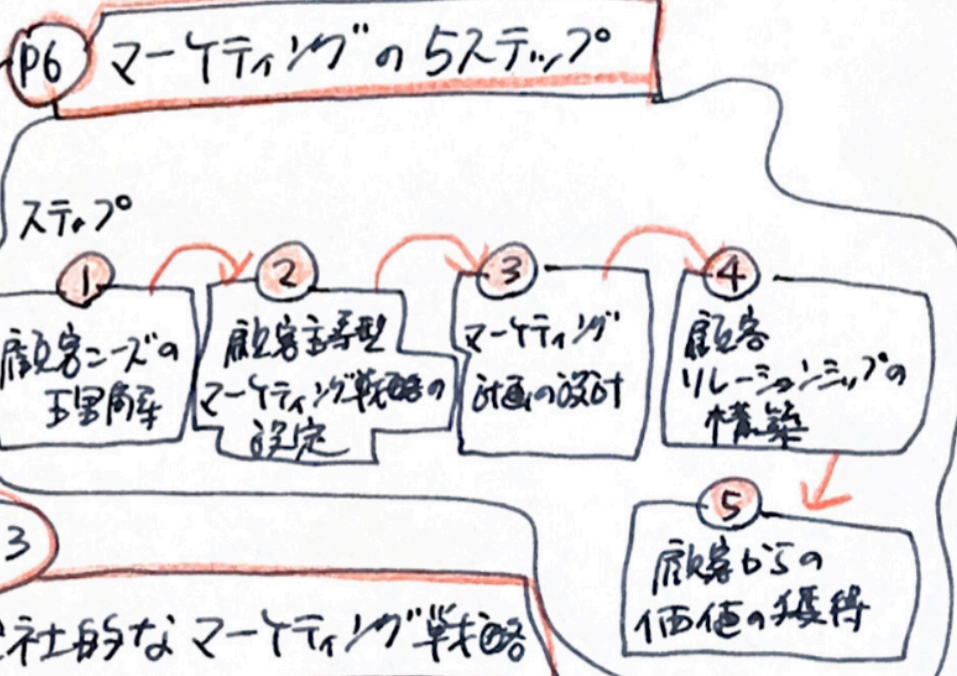 P6 マーケティングの5ステップ
ステップ
①
顧客ニーズの
理解
②
顧客主導型
マーケティング戦略の
設定
③
マーケティング
計画の設計
④
顧客
リレーションシップの
構築
⑤
顧客からの
価値の獲得
3
社的なマーケティング戦略